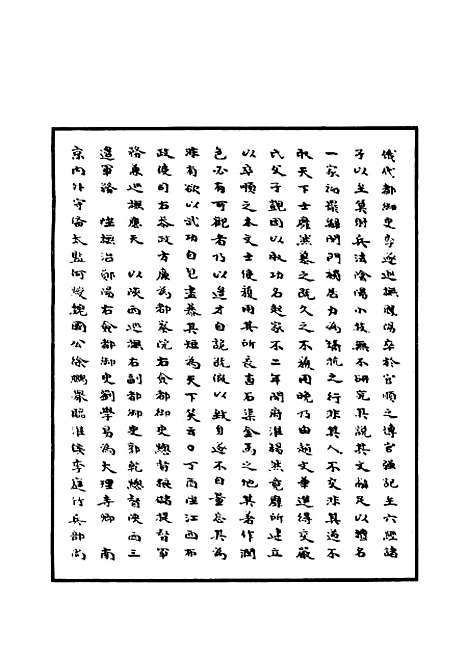 俄代都御史李遂巡撫鳳陽卒於官順之博官強記至六經諸
子以至算射兵法陰陽小技無不研究其說其文閎足以擅名
一家初罷歸閉門禍居力為矯抗之行非其人不交非其道不
取天下士靡然慕之既久之不獲用晚乃由趙文華進得交嚴
氏父子覬因以取功名起家不二年開府淮揚然竟靡所建立
以卒順之本文士使獲用其所長直石渠金馬之地其著作潤
色必有可觀者乃以邊才自詭既假以致自遂不自量忘其為
非有欲以武功自見盡暴其短為天下笑云○丁酉陞江西布
政使司右參政方廉為都察院右僉都御史總督糧儲提督軍
務兼巡撫應天　以陝西巡撫右副都御史郭乾總督陝西三
邊軍務　陞撫治鄖陽右僉都御史劉學易為大理寺卿　南
京內外守備太監何綬魏國公徐鵬舉臨淮侯李庭竹兵部尚